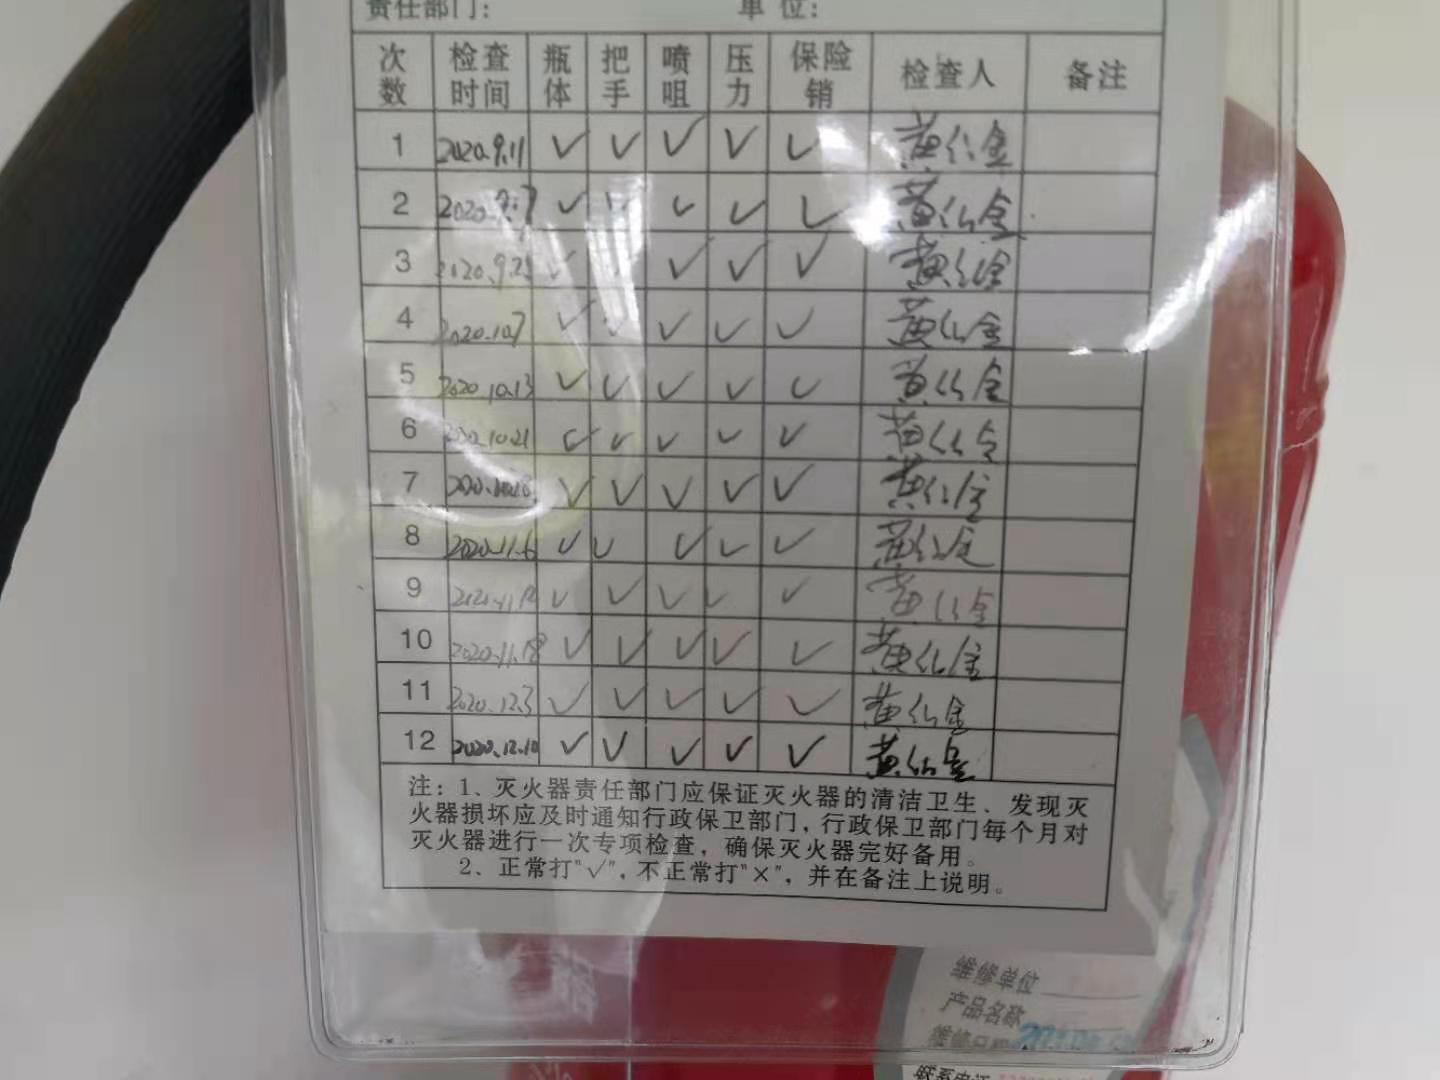 责任部门： 单 位：
次数 检查时间 瓶体 把手 喷咀 压力 保险销 检查人 备注
1 2020.9.11 ✓ ✓ ✓ ✓ ✓ 黄
2 ✓ ✓ ✓ ✓ ✓ 黄
3 ✓ ✓ ✓ ✓ ✓ 黄
4 2020.10.7 ✓ ✓ ✓ ✓ ✓ 黄
5 2020.10.13 ✓ ✓ ✓ ✓ ✓ 黄
6 2020.10.21 ✓ ✓ ✓ ✓ ✓ 黄
7 ✓ ✓ ✓ ✓ ✓ 黄
8 2020.11.6 ✓ ✓ ✓ ✓ ✓ 黄
9 ✓ ✓ ✓ ✓ ✓ 黄
10 2020.11.18 ✓ ✓ ✓ ✓ ✓ 黄
11 2020.12.3 ✓ ✓ ✓ ✓ ✓ 黄
12 2020.12.10 ✓ ✓ ✓ ✓ ✓ 黄
注：1、灭火器责任部门应保证灭火器的清洁卫生、发现灭
火器损坏应及时通知行政保卫部门，行政保卫部门每个月对
灭火器进行一次专项检查，确保灭火器完好备用。
2、正常打"✓"，不正常打"×"，并在备注上说明。
维修单位
产品名称
维修日期
联系电话